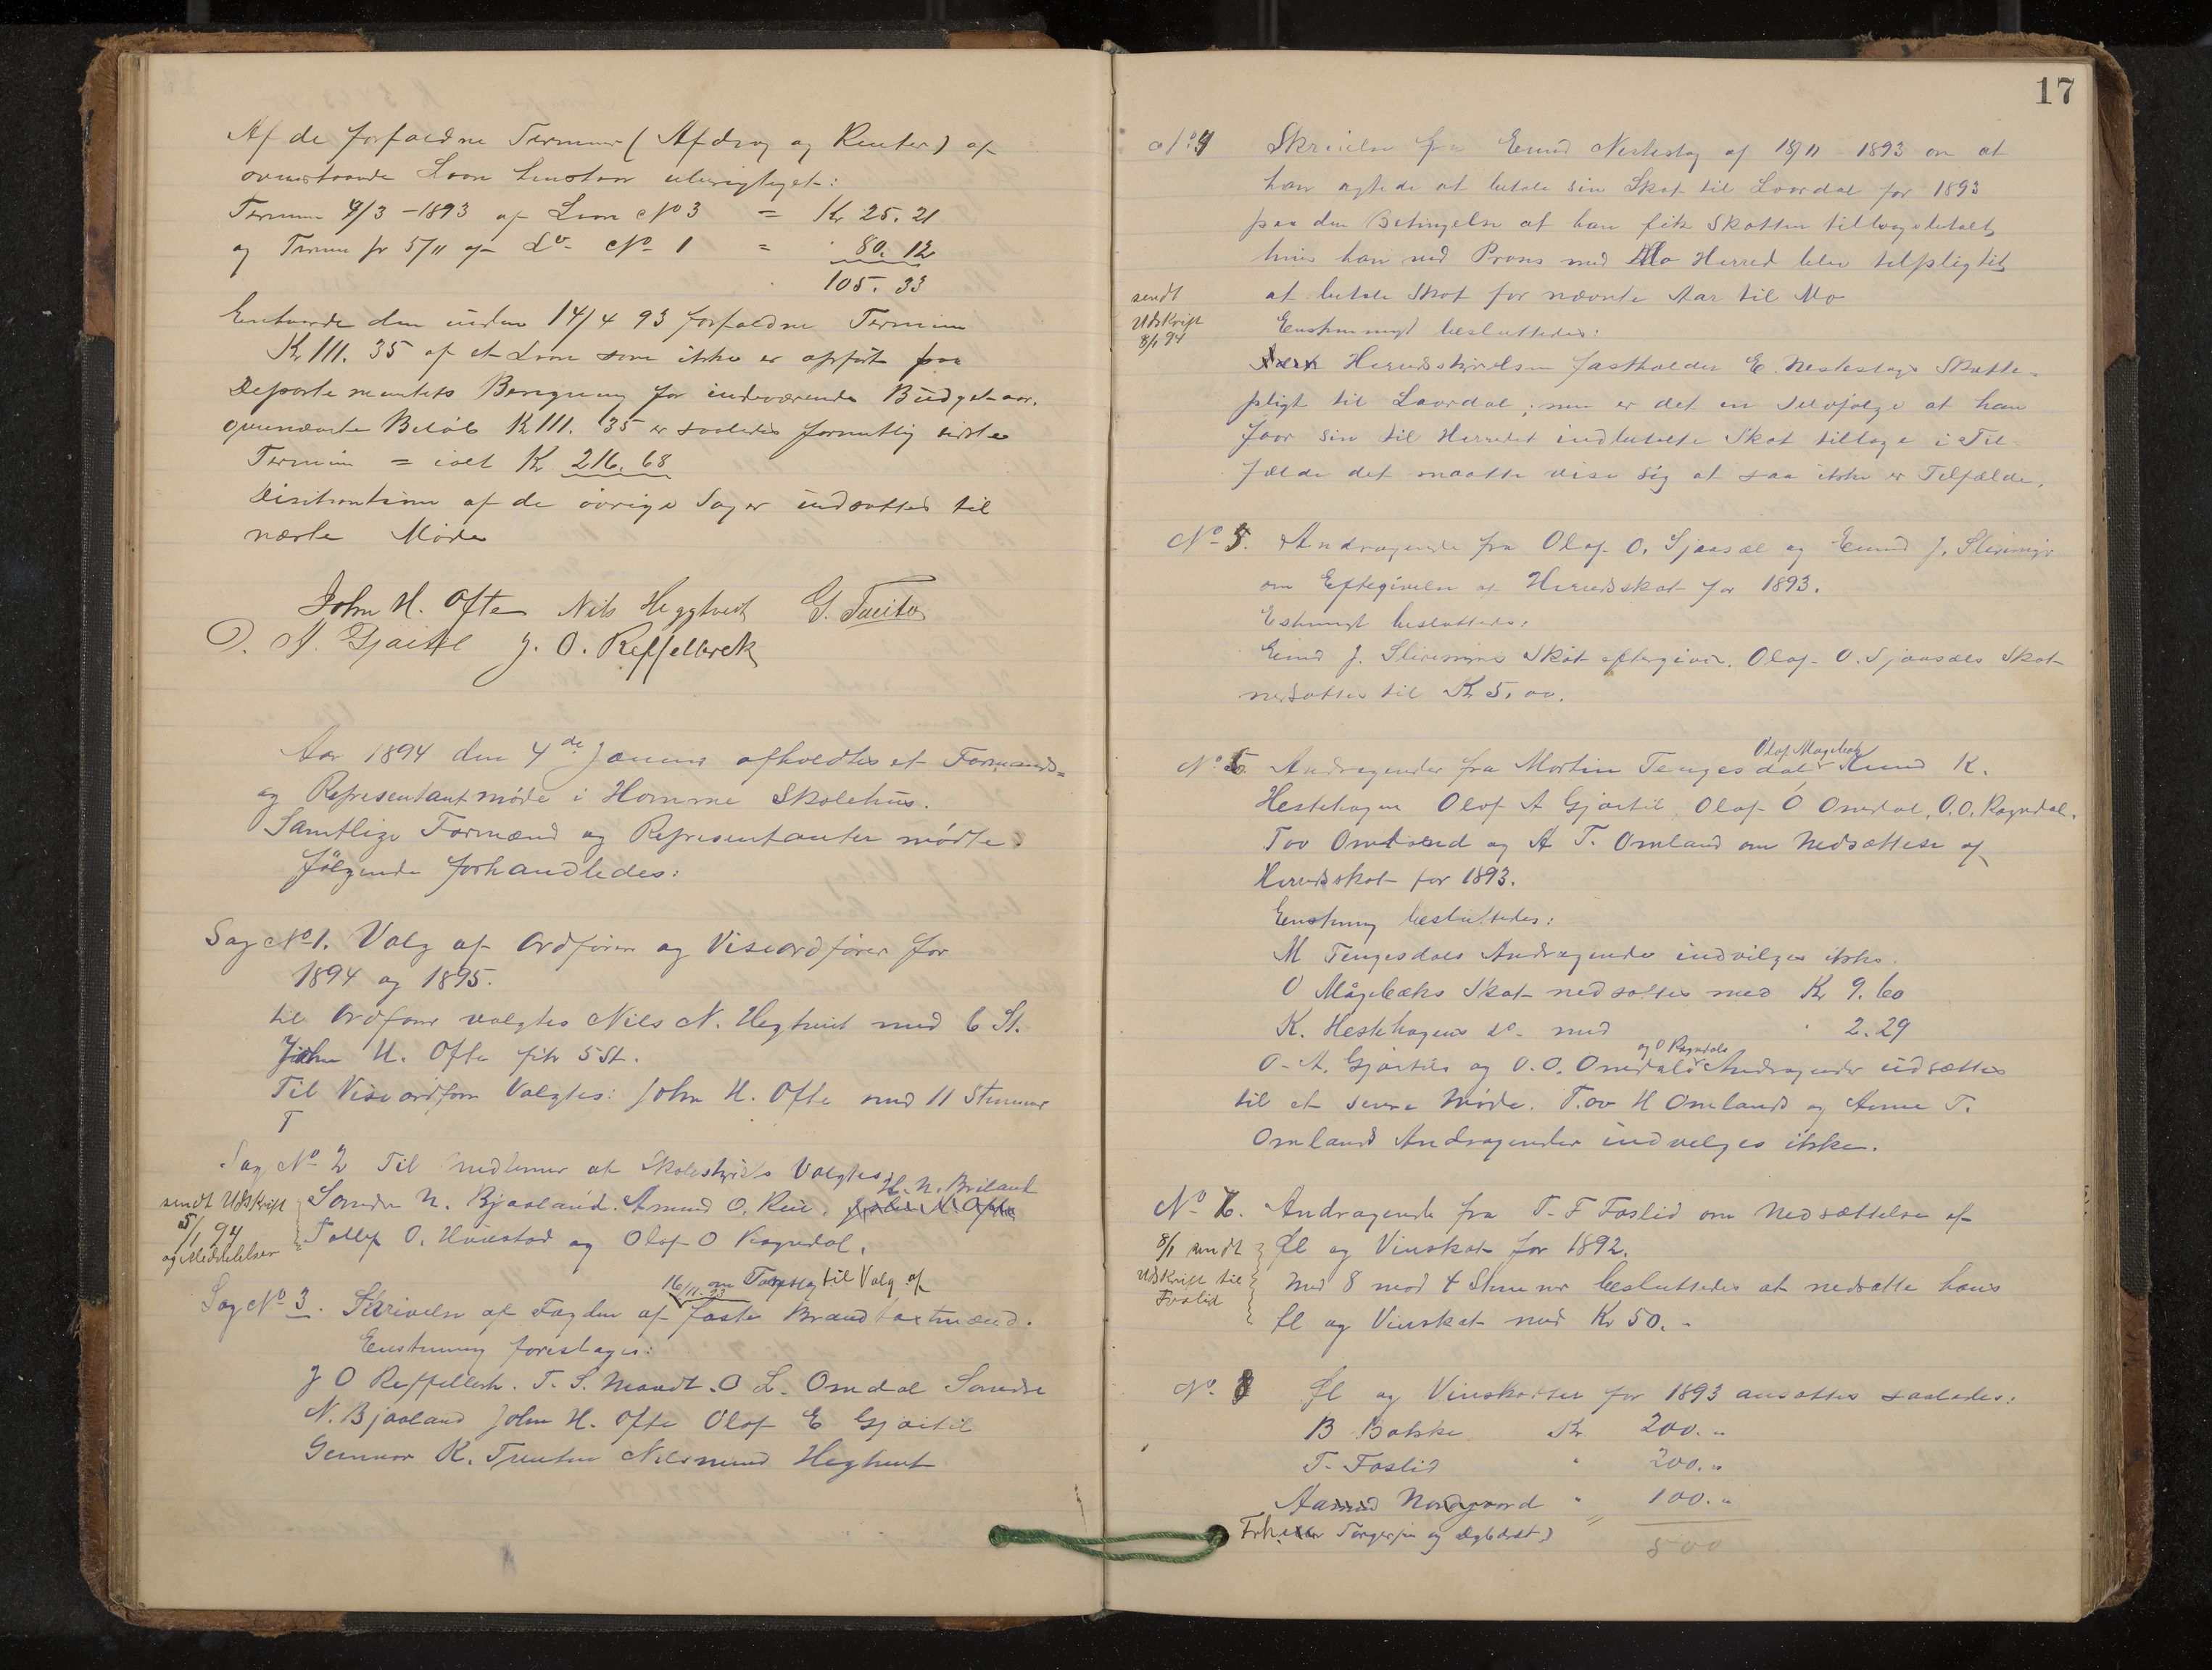 Af de forfaldne Terminer (Afdrag og Renter) af
ovenstaaende Laan henstaar uberigtiget:
Termin 4/3 - 1893 af Laan No 3 = Kr 25. 21
og Termin pr 5/11 af Do No 1 = " 80. 12
105. 33
den siden 14/4 93 forfaldne Termin
Kr 111. 35 af et Laan som ikke er opført paa
Departementets Beregning for indeværende Budgetaar.
Beløb Kr 111. 35 er saaledes formentlig sidste
Termin = ialt Kr 216. 68
af de øvrige Sager udsættes til
næste Møde
John H. Ofte Nils Heggtveit G. Tveito
O. A. Gjaitil J. O. Reppelbrek
Aar 1894 den 4de Januar afholdtes et Formands=
og Representantmøde i Homme Skolehus.
Samtlige Formænd og Representanter mødte.
følgende forhandledes:
Sag No 1. Valg af Ordfører og Viseordfører for
1894 og 1895.
til Ordfører valgtes Nils N. Hegtveit med 6 St.
John H. Ofte fik 5 St.
Til Viseordfører Valgtes: John H. Ofte med 11 Stemmer
T
Sag No 2 Til medlemer af Skolestyret Valgtes
H. N. Briland
sendt Udskrift
5/1 94
og Meddelelser
Sondre N. Bjaaland. Amund O. Rui. John H Ofte
Tollef O. Hvistad og Olaf O Ragndal.
16/11. 93 om Forslag til Valg af
Sag No 3. Skrivelse af Fogden af faste Brandtaxtmænd.
Enstemmig foreslages:
J O Reppelbrek. T. S. Mandt. O L. Omdal Sondre
N. Bjaaland John H. Ofte Olaf E Gjaitil
Gunnar K. Tveiten Nilsmund Hegtveit
17
No 4 Skrivelse fra Eivind Nestestog af 18/11 - 1893 om at
han agtede at betale sin Skat til Laardal for 1893
paa den Betingelse at han fik Skatten tilbagebetalt,
hvis han ved Proses med Mo Herred blev tilpligtet
at betale Skat for nævnte Aar til Mo
sendt
Udskrift
8/1 94
Enstemmigt besluttedes:
Herredsstyrelsen fastholder E. Nestestogs Skatte=
pligt til Laardal; men er det en Selvfølge at han
faar sin til Herredet indbetalte Skat tilbage i Til
fælde det maatte vise sig at saa ikke er Tilfælde.
No 5. Andragende fra Olaf O. Sjaasæl og Eivind J.
om Eftergivelse af Herredsskat for 1893.
Estemigt besluttedes:
Eivind J. Skat eftergives. Olaf O. Sjaasæls Skat
nedsættes til Kr 5,00.
Olaf Magebæk
No 6. Andragender fra Martin Tengesdal Knud K.
Hestehagen Olaf A Gjaitil Olaf O Omdal, O. O. Ragndal.
Tov Omland og A T. Omland om Nedsættese af
Herredsskat for 1893.
Enstemmig besluttedes:
M Tengesdals Andragende indvilges ikke.
O Mågebæks Skat nedsættes med Kr 9. 60
K. Hestehagens do. med " 2. 29
og O Ragndals
O. A. Gjaitils og O. O. Omdals Andragender udsættes
til et senere Møde. Tov H Omlands og Anne T.
Omlands Andragender indvelges ikke.
No 7. Andragende fra T. F Foslid om Nedsættelse af
Øl og Vinskat for 1892.
8/1 sendt
Udskrift til
Foslid
Med 8 mod 4 Stemmer besluttedes at nedsætte hans
Øl og Vinskat med Kr 50. "
No 8 Øl og Vinskatter for 1893 ansattes saaledes:
B Bakke Kr 200. "
T. Foslid " 200. "
Aasmund Nordgaard " 100. "
500